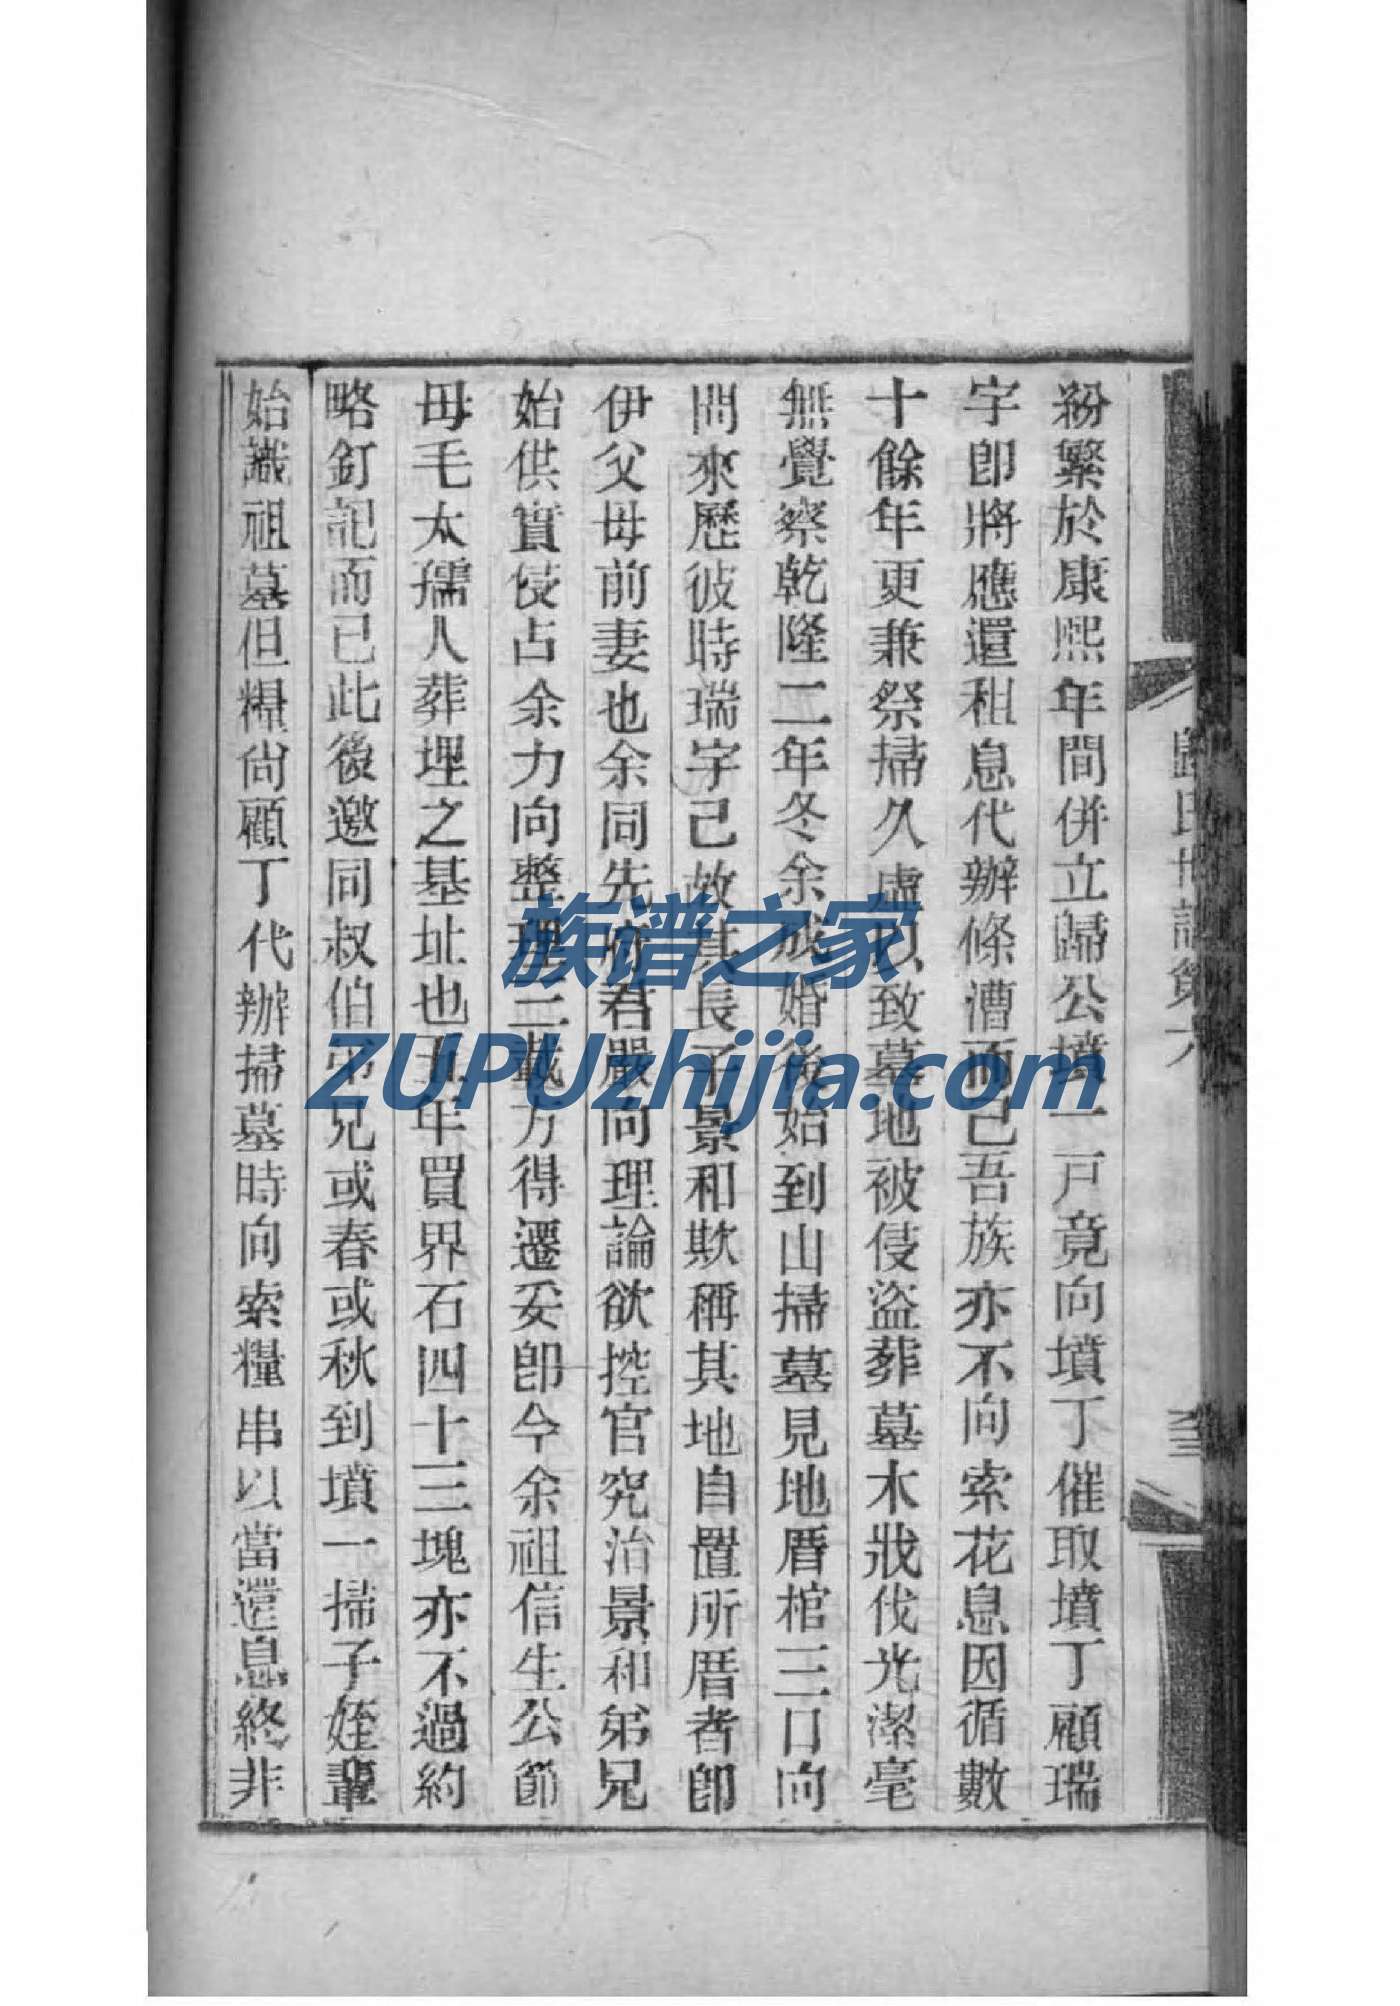 紛繁於康熙年間併立歸公墳一戶竟向墳丁催取墳丁顧瑞
宇卽將應還租息代辦條漕而已吾族亦不向索花息因循數
十餘年更兼祭掃久虛以致墓地被侵盜葬墓木戕伐光潔毫
無覺察乾隆二年冬余成婚後始到山掃墓見地厝棺三口向
問來歷彼時瑞宇已故其長子景和欺稱其地自置所厝者卽
伊父母前妻也余同先府君嚴向理論欲控官究治景和弟兄
始供實侵占余力向整理三載方得遷妥卽今余祖信生公節
母毛太孺人葬埋之基址也五年買界石四十三塊亦不過約
略釘記而已此後邀同叔伯弟兄或春或秋到墳一掃子姪輩
始識祖墓但糧尙顧丁代辦掃墓時向索糧串以當還息終非
歸氏世譜第六
族谱之家
ZUPUzhijia.com